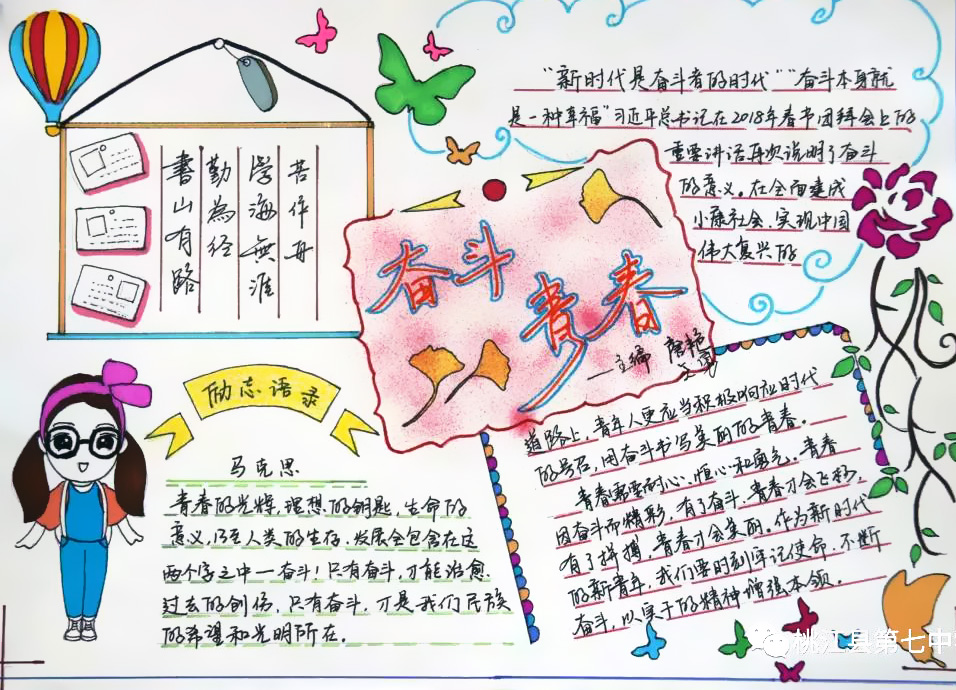 書山有路
勤為经
学海無涯
苦作舟
奋斗
青春
主编
励志语录
马克思
青春的光辉,理想的钥匙,生命的
意义,乃至人类的生存、发展会包含在这
两个字之中—奋斗!只有奋斗,才能治愈
过去的创伤,只有奋斗,才是我们民族
的希望和光明所在。
“新时代是奋斗者的时代”“奋斗本身就
是一种幸福”习近平总书记在2018年春节团拜会上的
重要讲话再次说明了奋斗
的意义。在全面建成
小康社会、实现中国
伟大复兴的
道路上,青年人更应当积极响应时代
的号召,用奋斗书写美丽的青春。
青春需要耐心、恒心和勇气。青春
因奋斗而精彩,有了奋斗,青春才会飞扬,
有了拼搏,青春才会美丽。作为新时代
的新青年,我们要时刻牢记使命,不断
奋斗,以实干的精神增强本领。
桃江县第七中